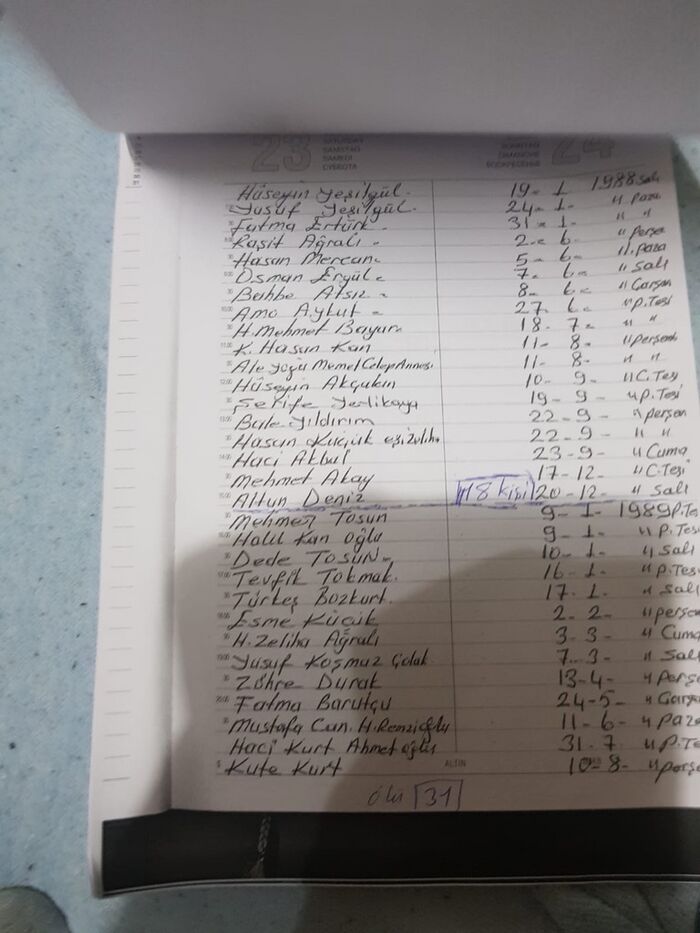 23 SATURDAY SAMSTAG SAMEDI СУБОТА SONNTAG DIMANCHE ВОСКРЕСЕНЬЕ 24
Hüseyin Yeşilgül. 19- 1 1988 Salı
Yusuf Yeşilgül. 24- 1- " Paza
Fatma Ertürk. 31- 1- " "
Raşit Ağralı. 2- 6- " perşe
Hasan Mercan. 5- 6- " paza
Osman Ergül. 7- 6- " Salı
Bahbe Atsız. 8- 6- " Çarşan
Amo Aykut. 27- 6- " p.Tesi
H. Mehmet Bayar. 18- 7- " "
K. Hasan Kan 11- 8- " perşemb
Memet Celep Annesi 11- 8- " "
Hüseyin Akçakın 10- 9- " C.Tesi
Şerife Yerlikaya 19- 9- " p.Tesi
Bale Yıldırım 22- 9- " perşen
Hasan Küçük eşi Zeliha 22- 9- " "
Haci Akbul 23- 9- " Cuma
Mehmet Akay 17-12- " C.Tesi
Altun Deniz 18 kişi 20-12- " Salı
Mehmet Tosun 9- 1- 1989 P.Te
Halil Kan oğlu 9- 1- " P.Tesi
Dede TOSUN- 10- 1- " Salı
Tevfik Tokmak. 16- 1- " P.Tesi
Türkeş Bozkurt. 17- 1- " Salı
Esme Küçük 2- 2- " perşe
H. Zeliha Ağralı 3- 3- " Cuma
Yusuf Koşmaz Çolak 7- 3- " Salı
Zöhre Durak 13-4- " Perşe
Fatma Barutçu 24-5- " Çarşa
Mustafa Can. H. Remzioğlu 11-6- " Paza
Haci Kurt Ahmet oğlu 31-7 " P.Te
Kute Kurt 10-8- " perşe
ALTIN
ölü 31